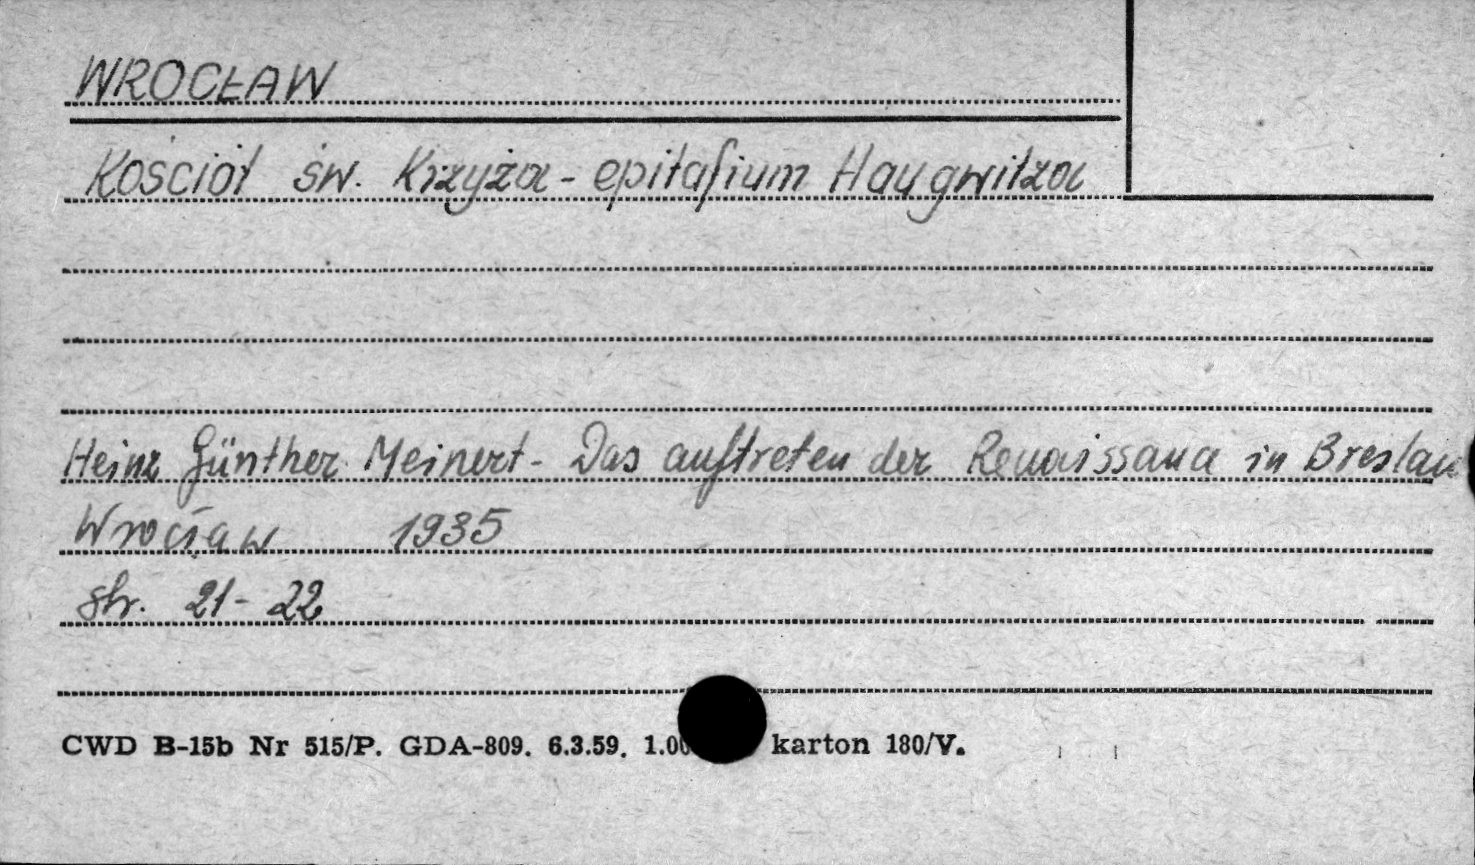 WROCŁAW
Kościół św. Krzyża - epitafium Haugwitza
Heinz Günther Meinert - Das auftreten der Renaissance in Breslau
Wrocław 1935
str. 21-22
CWD B-15b Nr 515/P. GDA-809. 6.3.59. 1.00 karton 180/V.